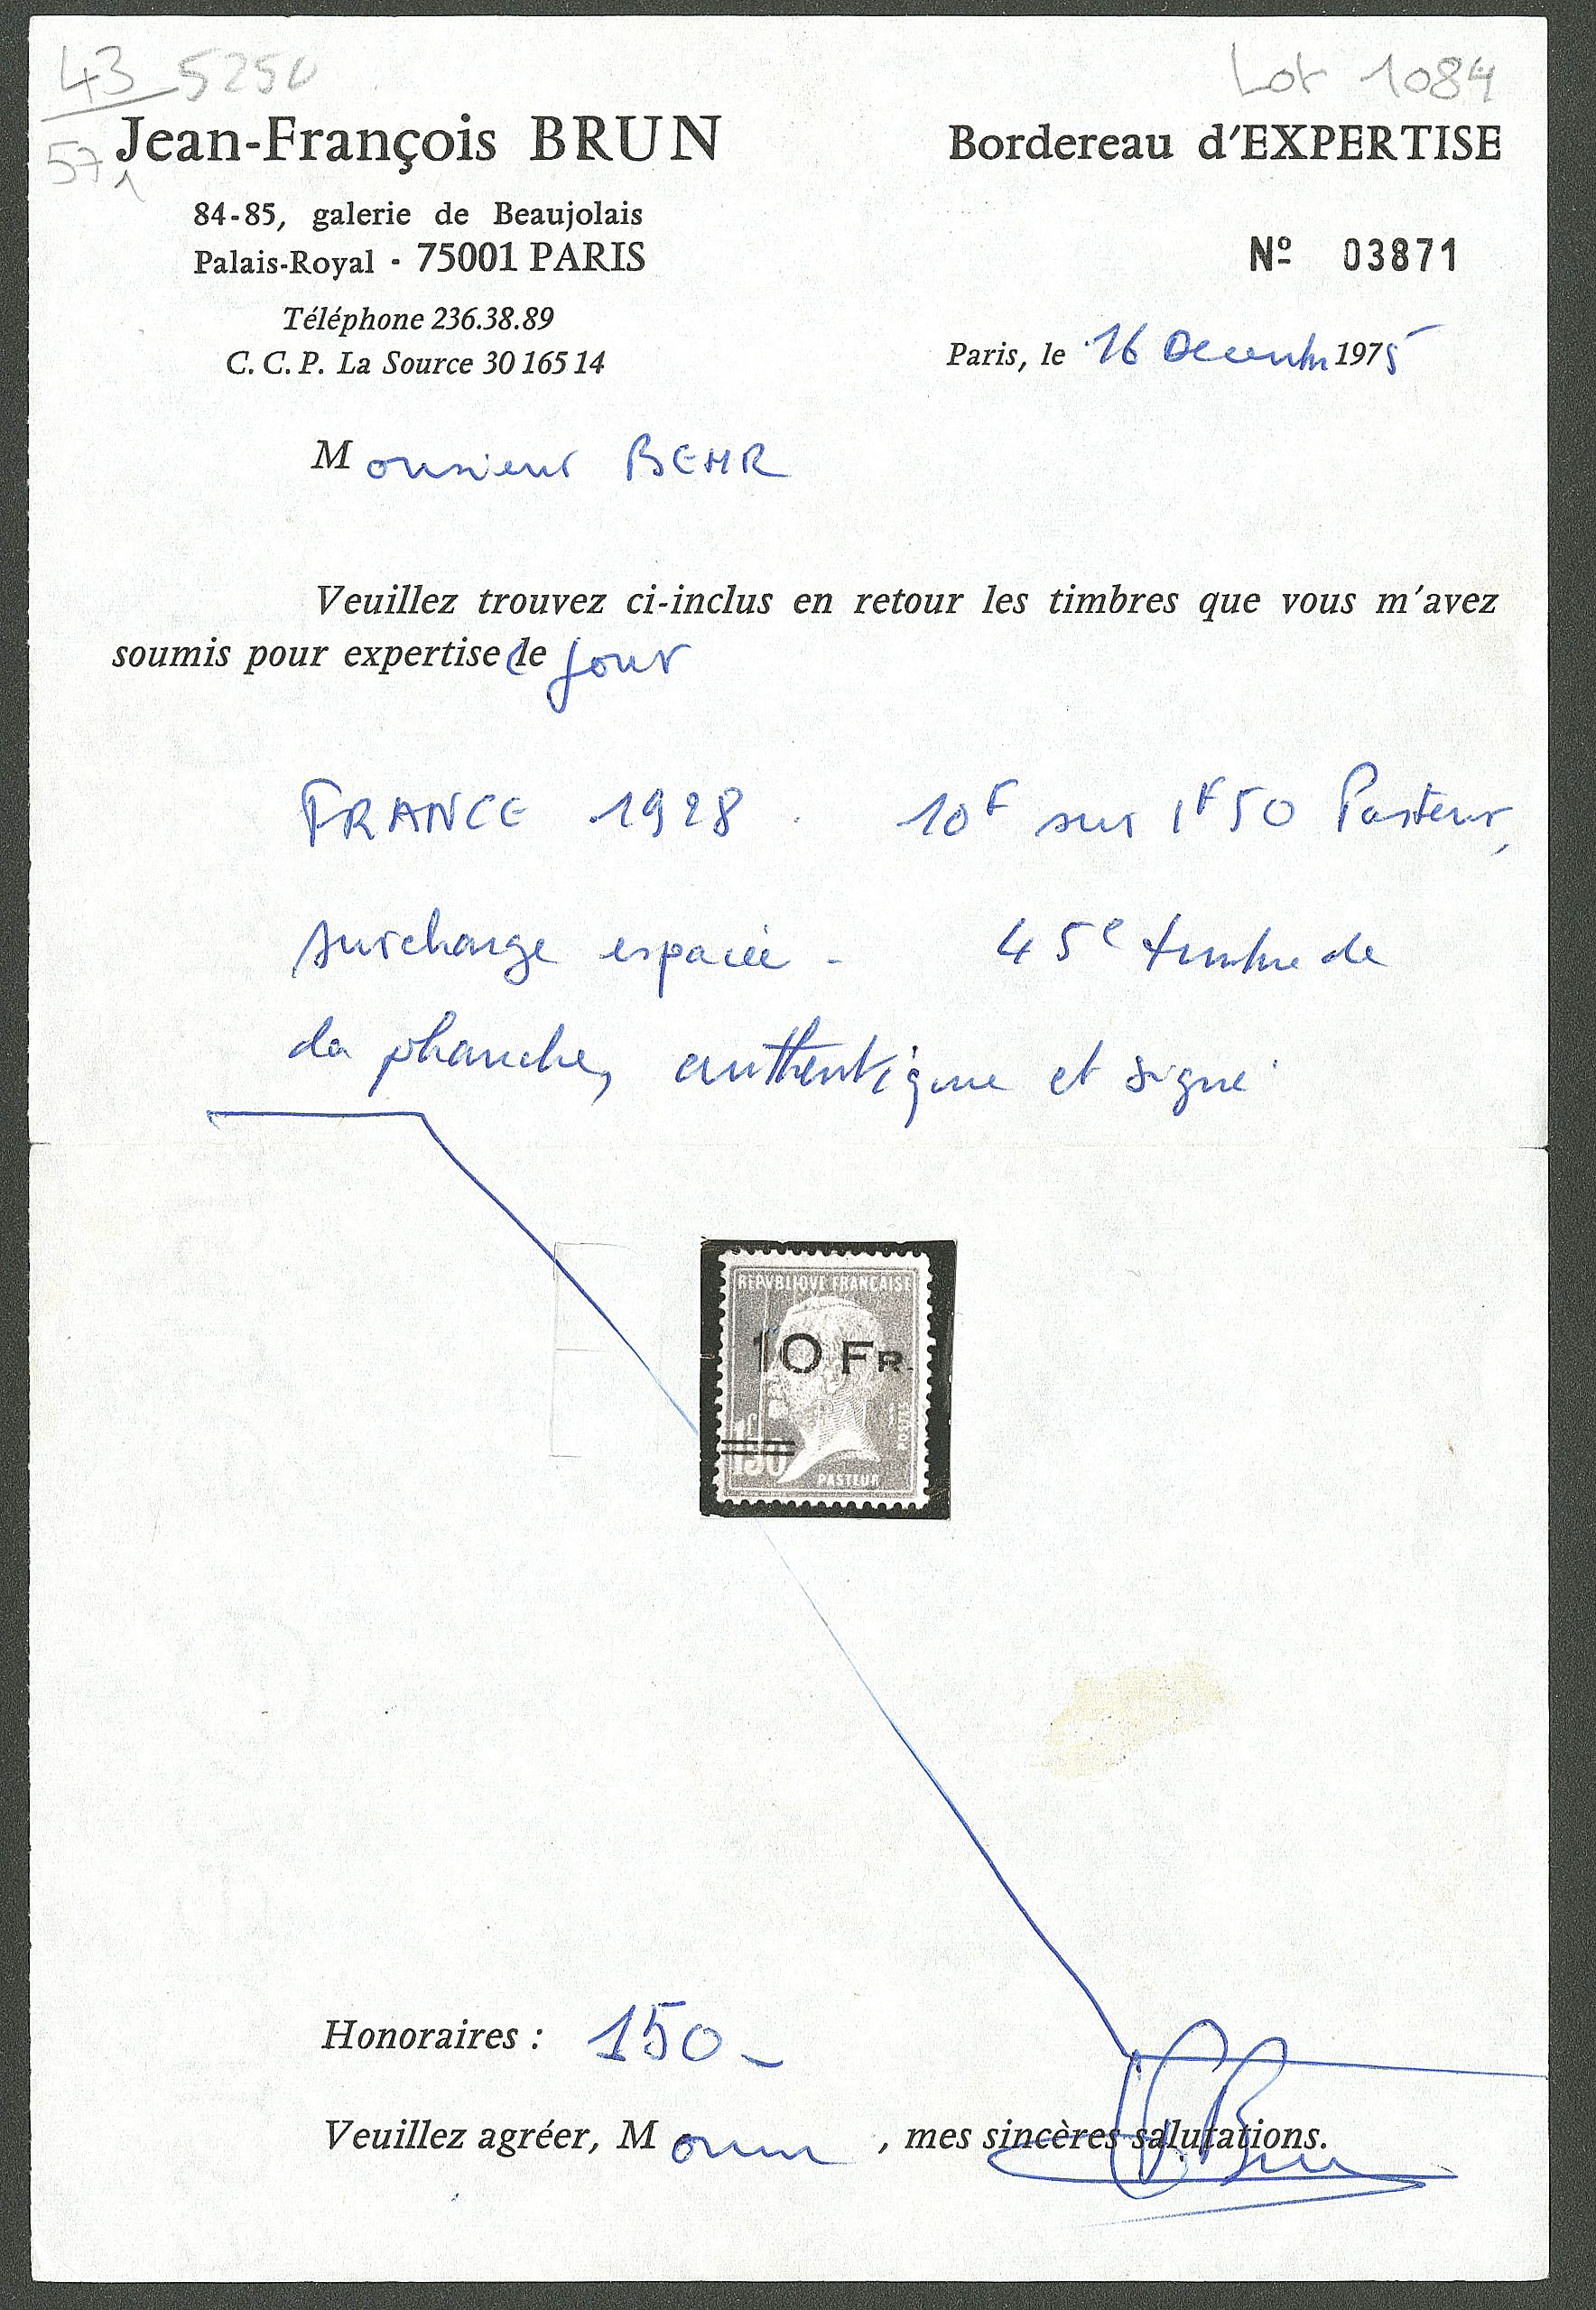 43 5250
Lot 1084
57 1
Jean-François BRUN
Bordereau d'EXPERTISE
84-85, galerie de Beaujolais
Palais-Royal - 75001 PARIS
Nº 03871
Téléphone 236.38.89
C. C. P. La Source 30 165 14
Paris, le 16 Decembre 1975
Monsieur BEHR
Veuillez trouvez ci-inclus en retour les timbres que vous m'avez
soumis pour expertise ce jour
FRANCE 1928. 10F sur 1F50 Pasteur,
surcharge espacée - 45e timbre de
la planche, authentique et signé
REPVBLIQVE FRANCAISE
10 FR.
1F50
POSTES
PASTEUR
Honoraires : 150 -
Veuillez agréer, Monsieur, mes sincères salutations.
JF Brun